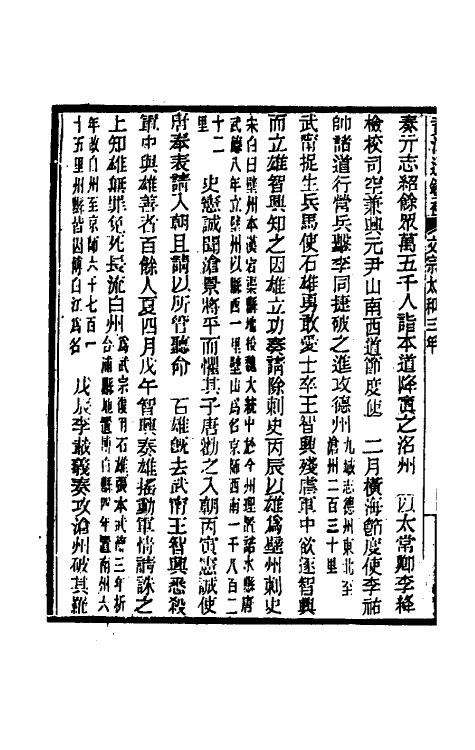 文宗太和三年
奏亓志紹餘眾萬五千人詣本道降寘之洺州　以太常卿李絳
檢校司空兼興元尹山南西道節度使　二月橫海節度使李祐
帥諸道行營兵擊李同捷破之進攻德州九域志德州東北至滄州二百三十里
武甯捉生兵馬使石雄勇敢愛士卒王智興殘虐軍中欲逐智興
而立雄智興知之因雄立功奏請除刺史丙辰以雄為壁州刺史
宋白曰壁州本漢宕渠縣地後魏大統中於今州理置諾水縣唐
武德八年立壁州以縣西一里壁山為名京師西南一千八百二
十二里　史憲誠聞滄景將平而懼其子唐勸之入朝丙寅憲誠使
唐奉表請入朝且請以所管聽命　石雄既去武甯王智興悉殺
軍中與雄善者百餘人夏四月戊午智興奏雄搖動軍情請誅之
上知雄無罪免死長流白州為武宗復用石雄張本武德三年析合浦縣地置博白縣四年置南州六
年改白州至京師六千七百一十五里州縣皆因博白江為名　戊辰李載義奏攻滄州破其羅